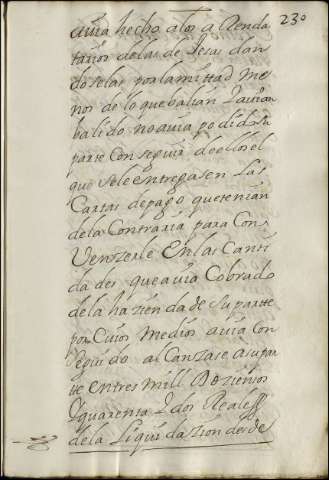 230
auia hecho a los arrenda
tarios de las dehesas dan
doselas por la mittad me
nos de lo que balian y auian
balido no auia podido su
parte conseguir de ellos el
que se le entregasen las
Cartas de pago que tenian
de la Contraria para Con
Venzerle en las Canti
dades que auia Cobrado
de la hazienda de su partte
por Cuios medios auia Con
seguido alcanzase a su par
tte en tres mill Dozientos
y quarenta y dos Reales
de la Liquidazion desde